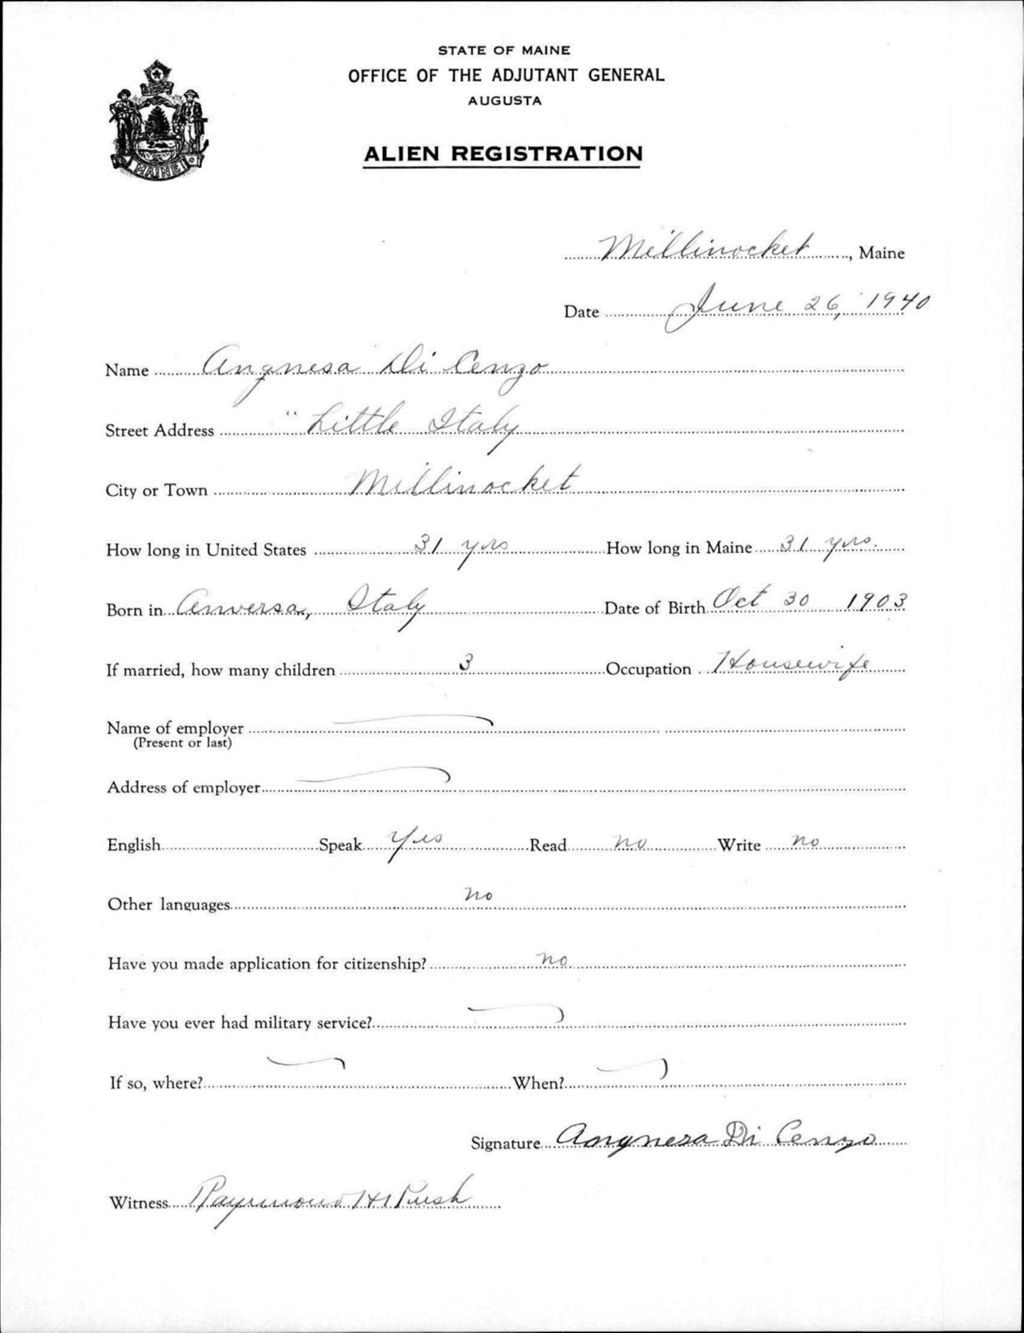 STATE OF MAINE
OFFICE OF THE ADJUTANT GENERAL
AUGUSTA
ALIEN REGISTRATION
MAINE
Millinocket, Maine
Date June 26, 1940
Name Angnesa Di Cenzo
Street Address " Little Italy
City or Town Millinocket
How long in United States 31 yrs How long in Maine 31 yrs.
Born in Anversa, Italy Date of Birth Oct 30 1903
If married, how many children 3 Occupation Housewife
Name of employer
(Present or last)
Address of employer
English Speak Yes Read no Write no
Other languages no
Have you made application for citizenship? no
Have you ever had military service?
If so, where? When?
Signature Angnesa Di Cenzo
Witness Raymond H